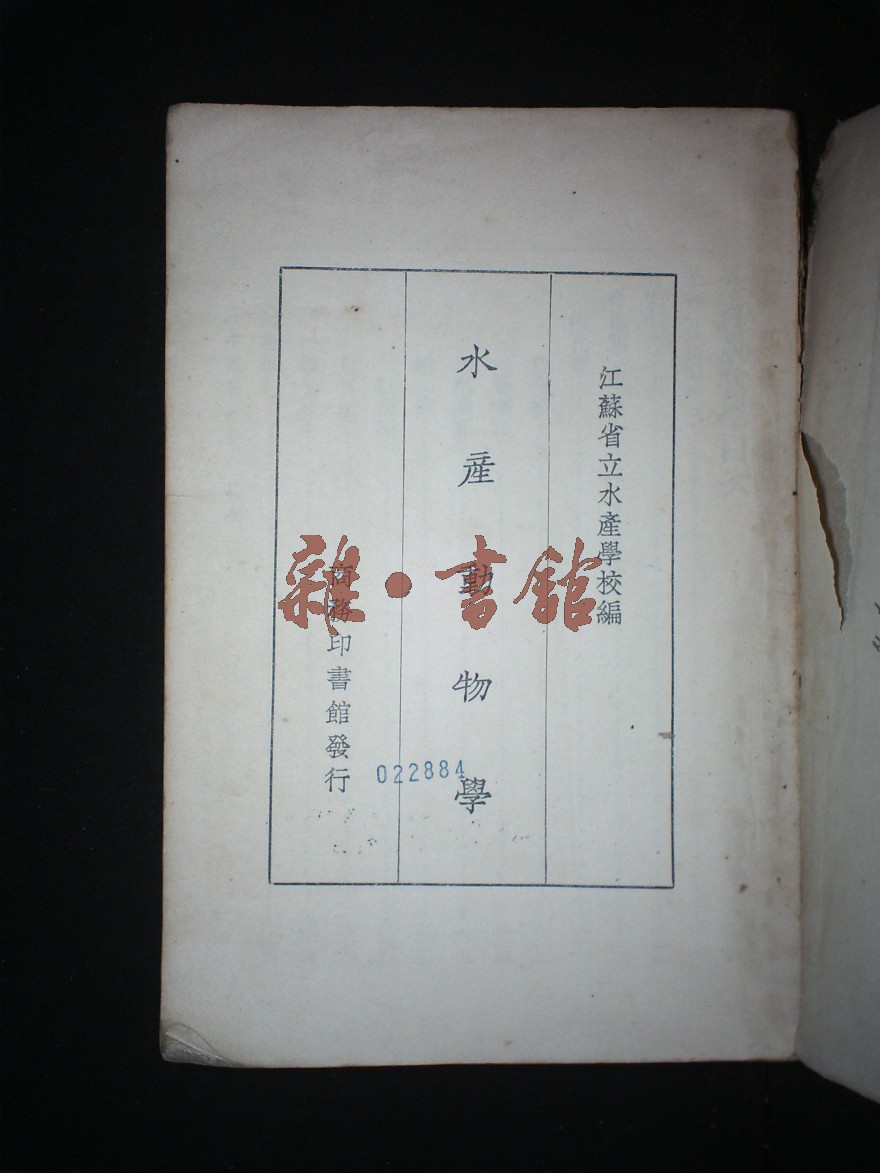 江蘇省立水產學校編
水產動物學
商務印書館發行
022884
雜·書館